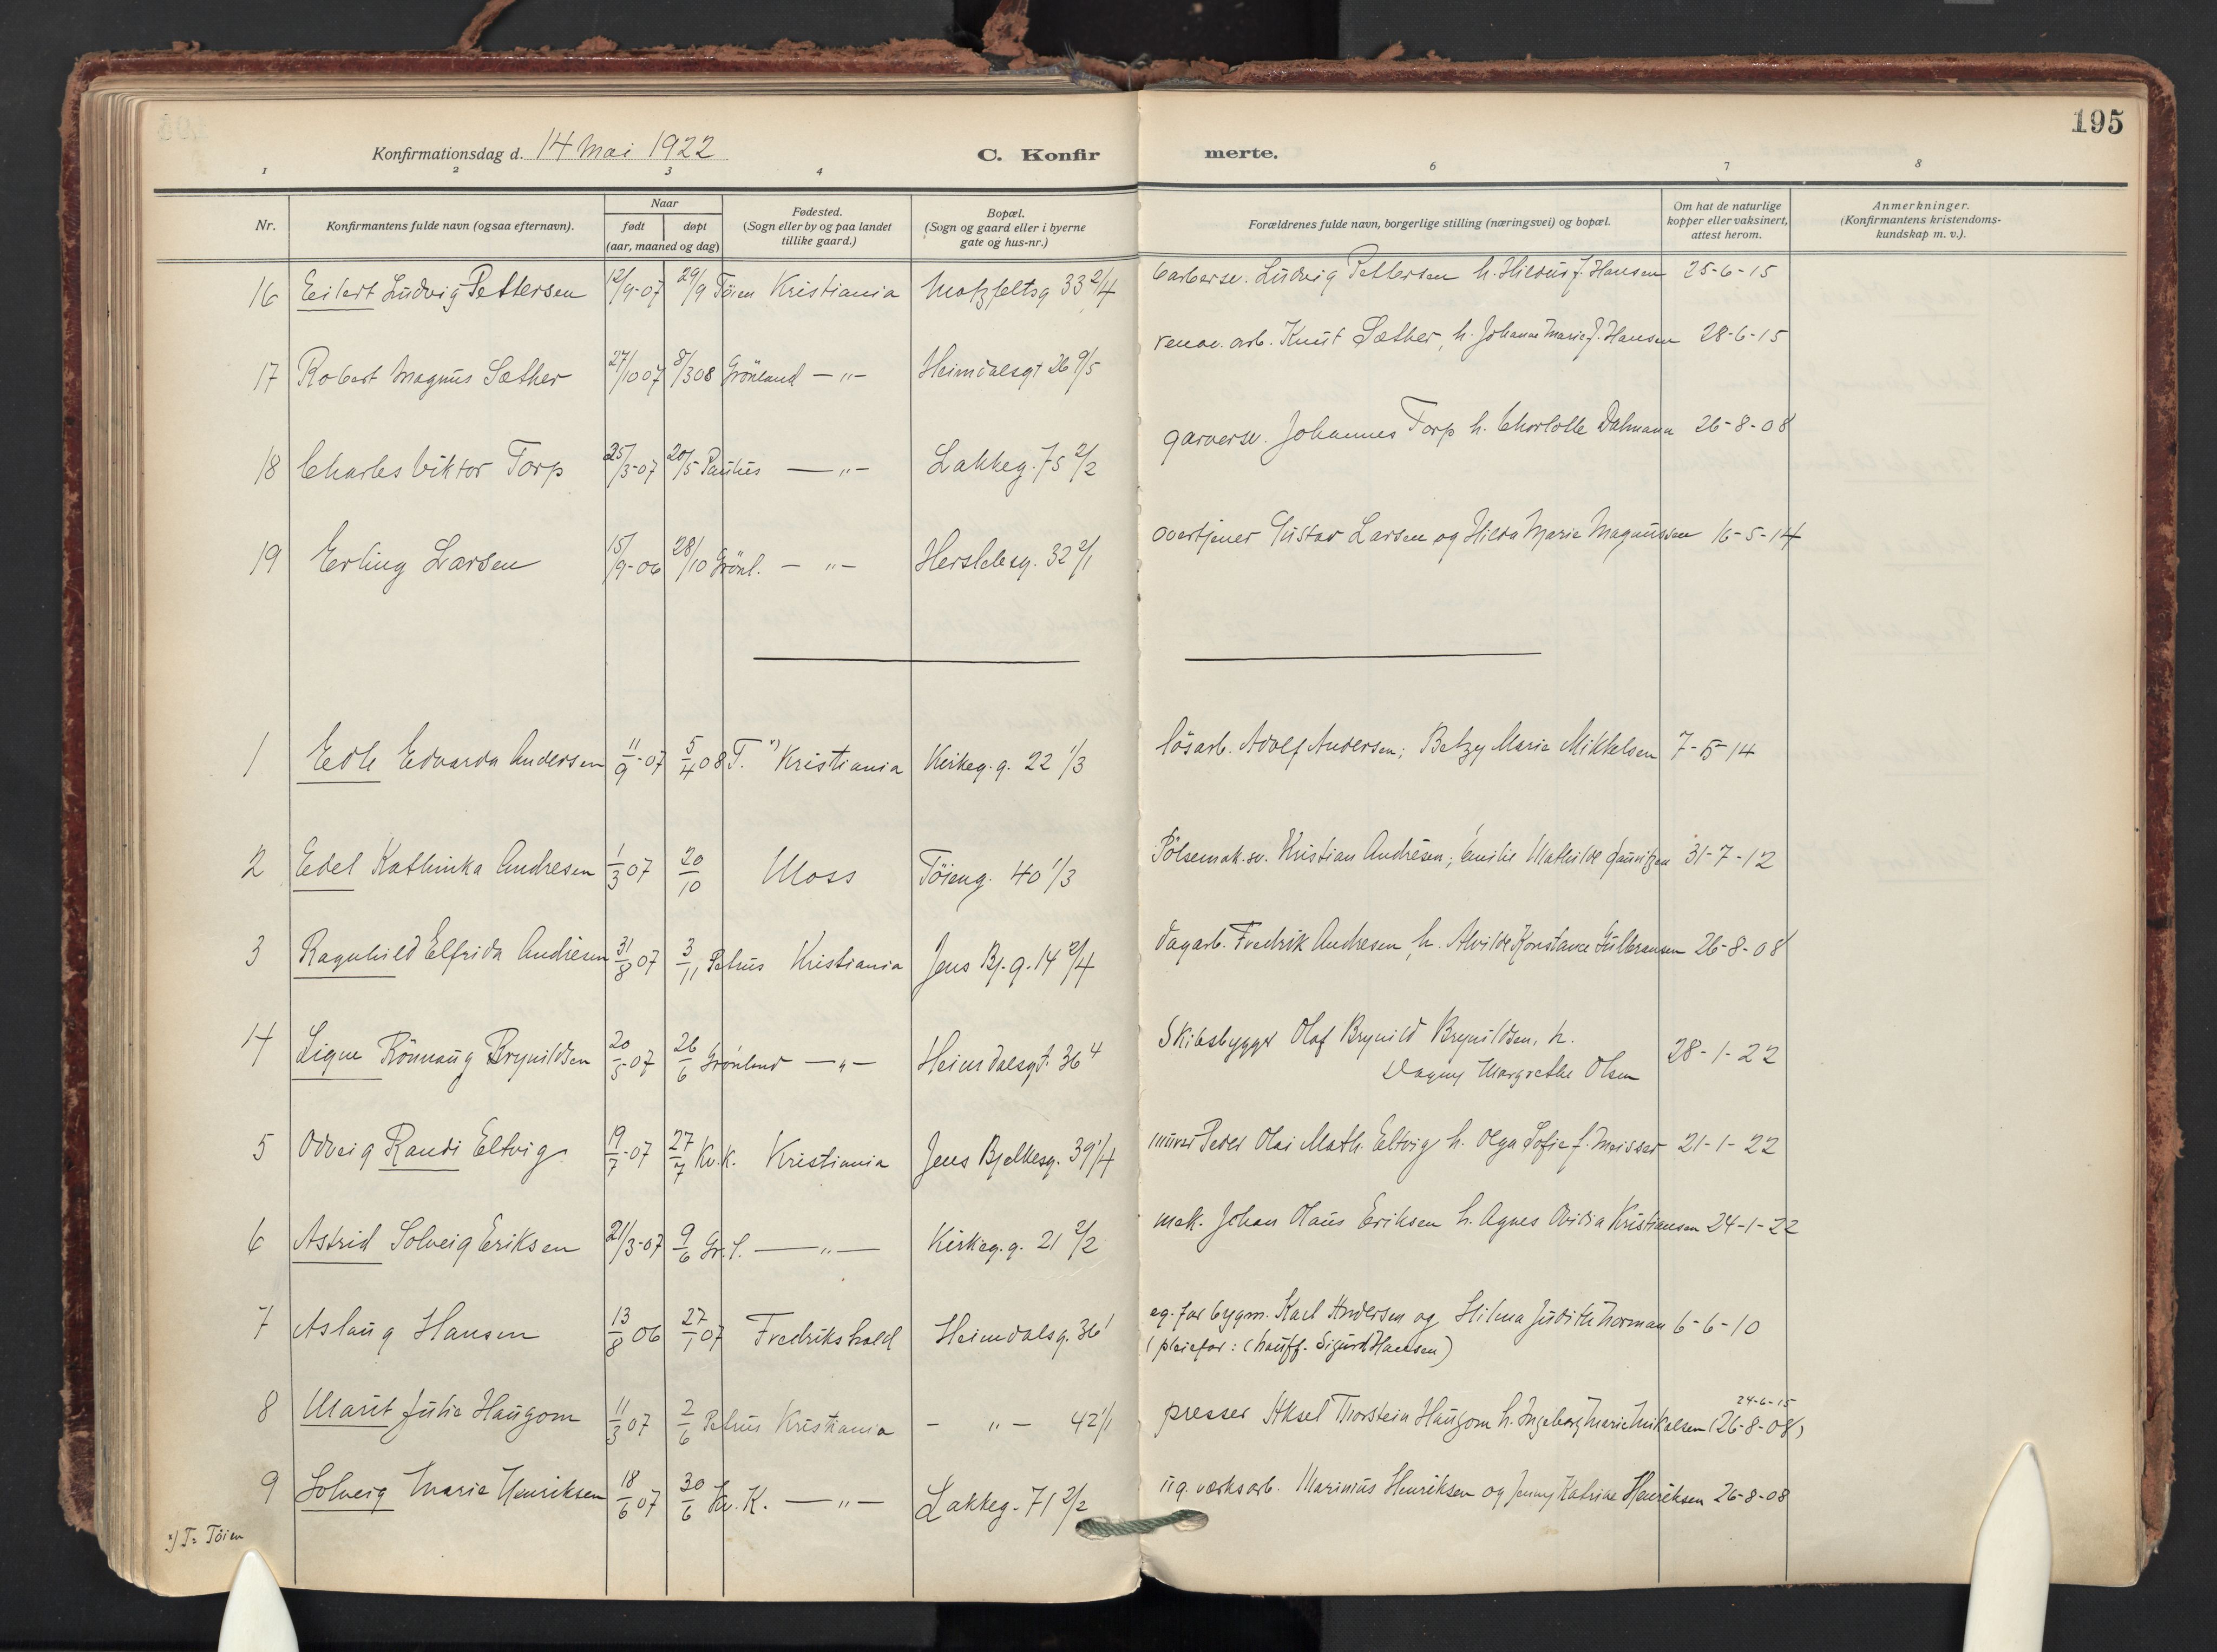 195
Konfirmationsdag d. 14 Mai 1922 C. Konfirmerte.
1 2 3 4 6 7 8
Nr. Konfirmantens fulde navn (ogsaa efternavn). Naar født døpt (aar, maaned og dag) Fødested. (Sogn eller by og paa landet tillike gaard.) Bopæl. (Sogn og gaard eller i byerne gate og hus-nr.) Forældrenes fulde navn, borgerlige stilling (næringsvei) og bopæl. Om hat de naturlige kopper eller vaksinert, attest herom. Anmerkninger. (Konfirmantens kristendoms-kundskap m. v.).
16 Eilert Ludvig Pettersen 12/9-07 29/9 Töien Kristiania Motzfeltsg 33 2/4 barbersv. Ludvig Pettersen h. f. Hansen 25-6-15
17 Robert Magnus Sæther 27/10 07 8/3 08 Grönland -"- Heimdalsgt 26 renov. arb. Knut Sæther, h. Johanne Marie f. Hansen 28-6-15
18 Charles Viktor Torp 25/3-07 20/5 Paulus -"- Lakkeg. 75 2/2 garversv. Johannes Torp h. Charlotte Dalmann 26-8-08
19 Erling Larsen 15/9-06 28/10 Grönl. -"- Herslebsg. 32 2/1 overtjener Gustav Larsen og Hilda Marie Magnussen 16-5-14
1 Edle Edvarda Andersen 11/9-07 5/4 08 T. x) Kristiania Kirkeg.g. 22 1/3 lösarb. Adolf Andersen; Betzy Marie Mikkelsen 7-5-14
2 Edel Kathinka Andresen 1/3 07 20/10 Moss Töieng. 40 1/3 Pölsemak.sv. Kristian Andresen; Emilie Mathilde 31-7-12
3 Ragnhild Elfrida Andresen 31/8 07 3/11 Petrus Kristiania Jens Bj.g. 14 2/4 dagarb. Fredrik Andresen, h. Alvilde Konstance Gulbransen 26-8-08
4 Signe Rönnaug Brynildsen 20/5-07 26/6 Grönland -"- Heimdalsgt. 36 4 Skibsbygger Olaf Brynild Brynildsen, h.
Dagny Margrethe Olsen 28-1-22
5 Odveig Randi Eltvig 19/7-07 27/7 Kv.K. Kristiania Jens Bjelkesg. 39 1/4 murer Peder Olai Math. Eltvig h. Olga Sofie f. 21-1-22
6 Astrid Solveig Eriksen 21/3-07 9/6 Gr.l. -"- Kirkeg.g. 21 2/2 mek. Johan Olaus Eriksen h. Agnes Ovidia Kristiansen 24-1-22
7 Aslaug Hansen 13/8 06 27/1 07 Fredrikshald Heimdalsg. 36 1 eg. far bygm. Karl Andersen og Hilma Judith Norman 6-6-10
(pleiefar: (hauff. Sigurd Hansen)
8 Marit Julie Haugom 11/3 07 2/6 Petrus Kristiania -"- 42 1/1 presser Aksel Thorstein Haugom h. Ingeborg Marie Mikalsen 24-6-15 (26-8-08)
9 Solveig Marie Henriksen 18/6 07 30/6 Kv. K. -"- Lakkeg. 71 2/2 ug. verksarb. Marinius Henriksen og Jenny Katrine Henriksen 26-8-08
x) T= Töien